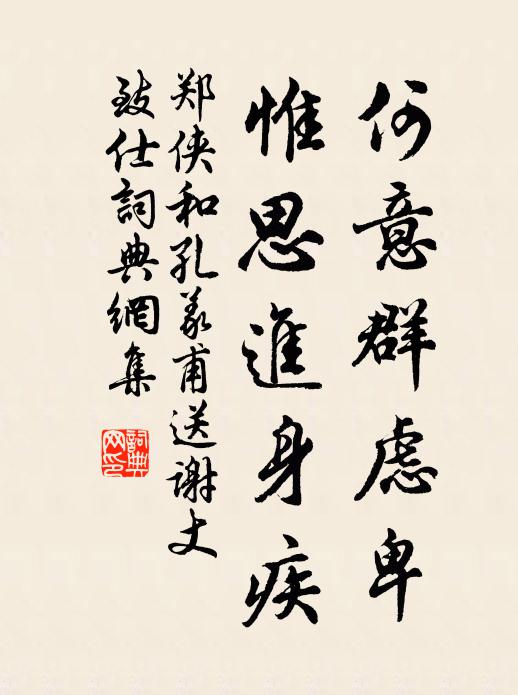 何意群虑卑
惟思進身疾
郑侠和孔義甫送谢丈
致仕詞典網集
詞典网印